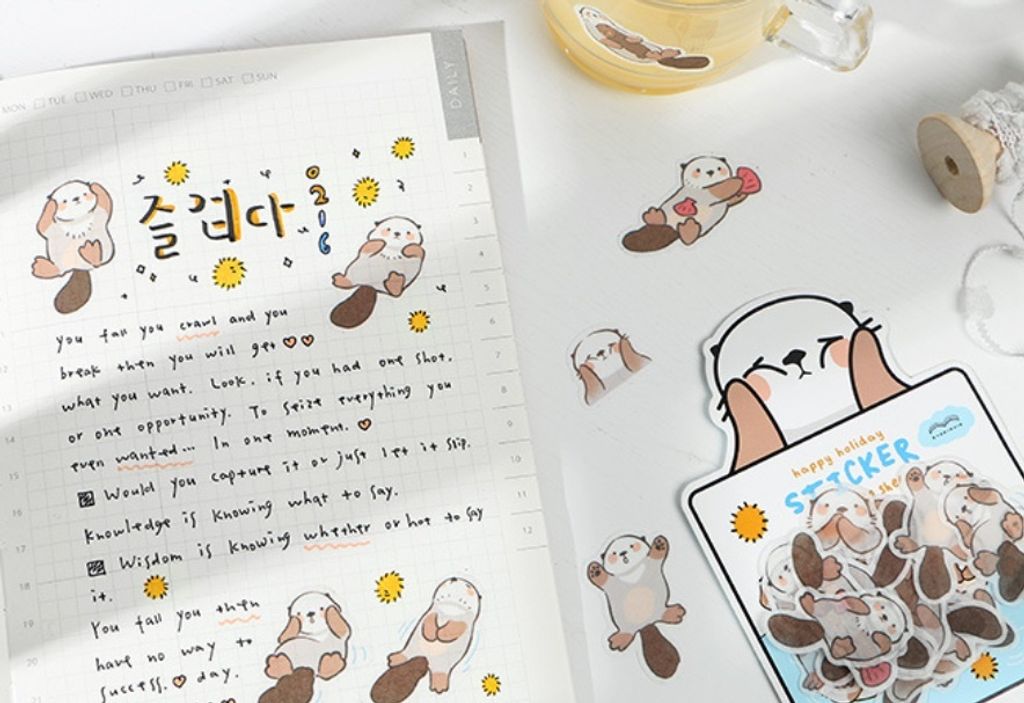 MON TUE WED THU FRI SAT SUN
DAILY
즐겁다
0216
you fall you crawl and you
break then you will get
what you want. Look. if you had one shot.
or one opportunity. To seize everything you
even wanted... In one moment.
Would you capture it or just let it slip.
Knowledge is knowing what to say.
Wisdom is knowing whether or not to say
it.
You fall you then
have no way to
success. day.
1
2
3
4
5
6
7
8
9
10
11
12
13
14
15
16
17
18
19
20
21
happy holiday
STICKER